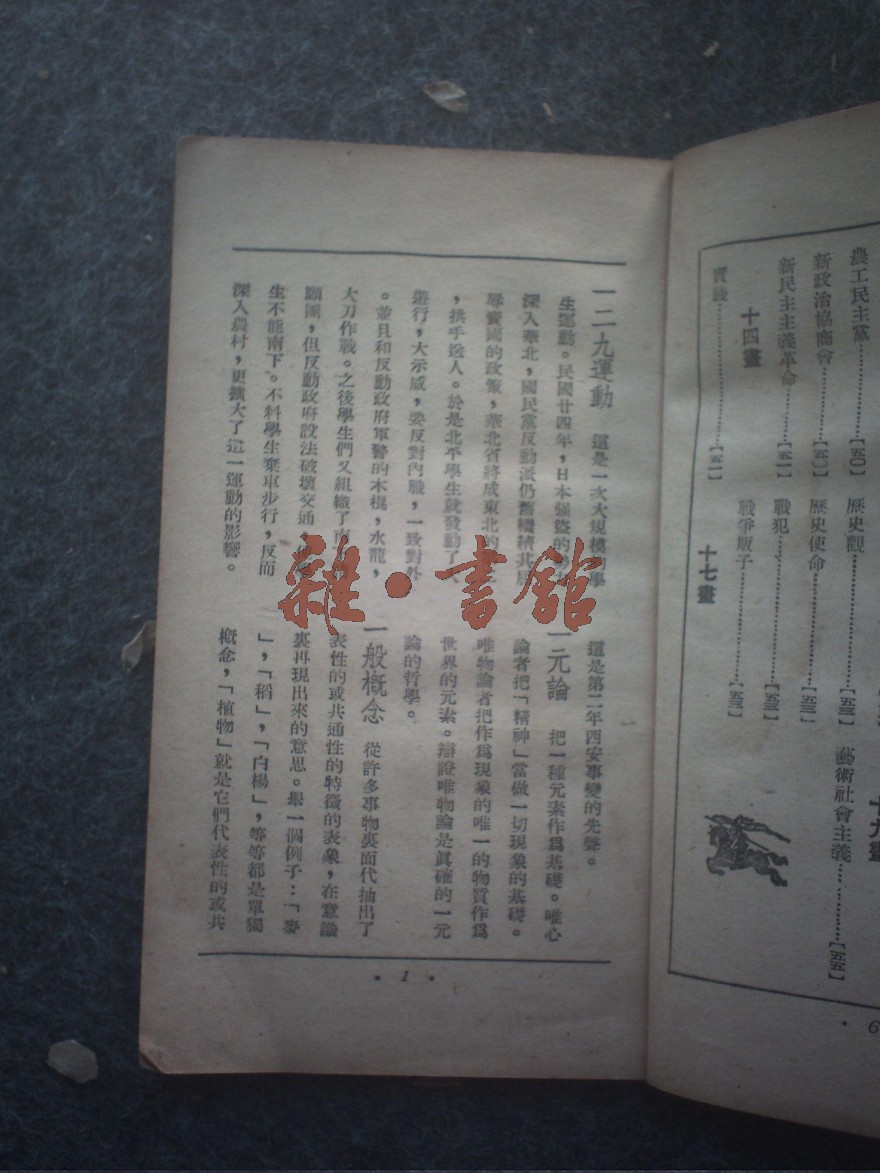 農工民主黨…………【五〇】
新政治協商會………【五〇】
新民主主義革命……【五一】
十四畫
實踐…………………【五一】
歷史觀………………【五二】
歷史使命……………【五三】
戰犯…………………【五三】
戰爭販子……………【五三】
十七畫
十九畫
藝術社會主義………【五五】
· 6
一二九運動 這是一次大規模的學
生運動。民國廿四年,日本强盜的
深入華北,國民黨反動派仍舊繼續其屈
辱賣國的政策,華北省將成東北的
,拱手送人。於是北平學生就發動了大
遊行,大示威,要反對內戰,一致對外
。並且和反動政府軍警的木棍,水龍,
大刀作戰。之後學生們又組織了南
願團,但反動政府設法破壞交通,
生不能南下。不料學生棄車步行,反而
深入農村,更擴大了這一運動的影響。
這是第二年西安事變的先聲。
一元論 把一種元素作爲基礎。唯心
論者把「精神」當做一切現象的基礎。
唯物論者把作爲現象的唯一的物質作爲
世界的元素。辯證唯物論是眞確的一元
論的哲學。
一般概念 從許多事物裏面代抽出了
表性的或共通性的特徵的表象,在意識
裏再現出來的意思。舉一個例子:「麥
」,「稻」,「白楊」,等等都是單獨
概念,「植物」就是它們代表性的或共
· 1 ·
雜·書館